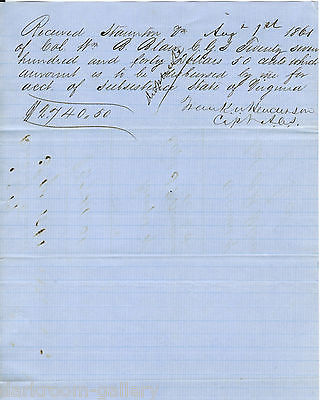 Received Staunton Va Augt 1st 1861
of Col Wm B Blair C.G.S Twenty seven
hundred and forty Dollars 50 cents which
amount is to be disbursed by me for
acct of Subsistence State of Virginia
$2,740,50
Henderson
Capt A.C.S.